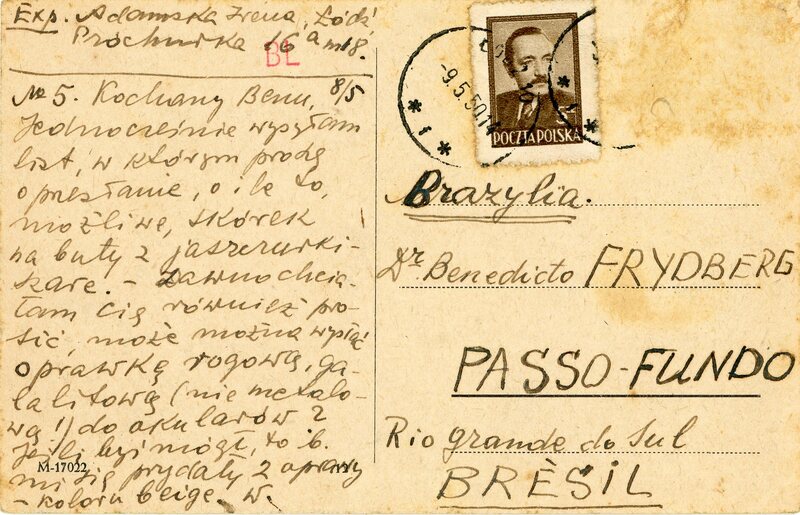 Exp. Adamska Irena, Łódź,
Próchnika 16a m 18.
BL
№ 5. Kochany Benu, 8/5
Jednocześnie wysyłam
list, w którym proszę
o przesłanie, o ile to,
możliwe, skórek
na buty z jaszczurki-
szare. - Dawno chcia-
łam Cię również pro-
sić, może można wysłać
oprawkę rogową, ga-
lalitową (nie metalo-
wą!) do okularów 2
Jeśli byś mógł, to b.
mi się przydały 2 oprawy
- koloru beige. W.
M-17022
-9.5.50.14
POCZTA POLSKA
Brazylia.
Dr Benedicto FRYDBERG
PASSO-FUNDO
Rio grande do Sul
BRÈSIL